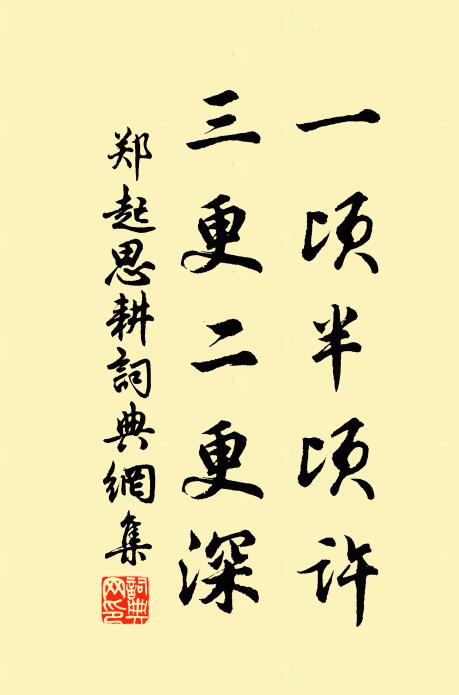 一顷半顷许
三更二更深
郑起思耕詞典網集
詞典網印